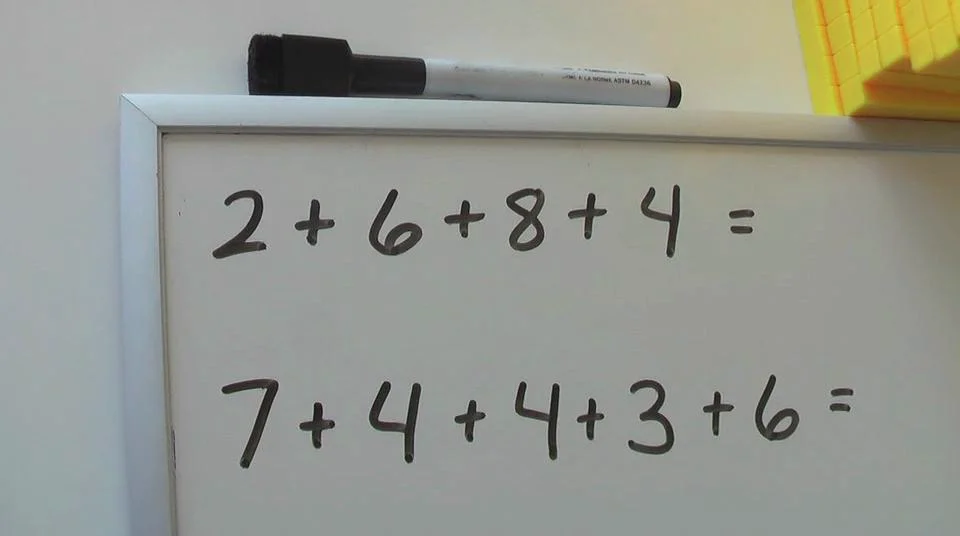 À LA NORME ASTM D4236
2 + 6 + 8 + 4 =
7 + 4 + 4 + 3 + 6 =